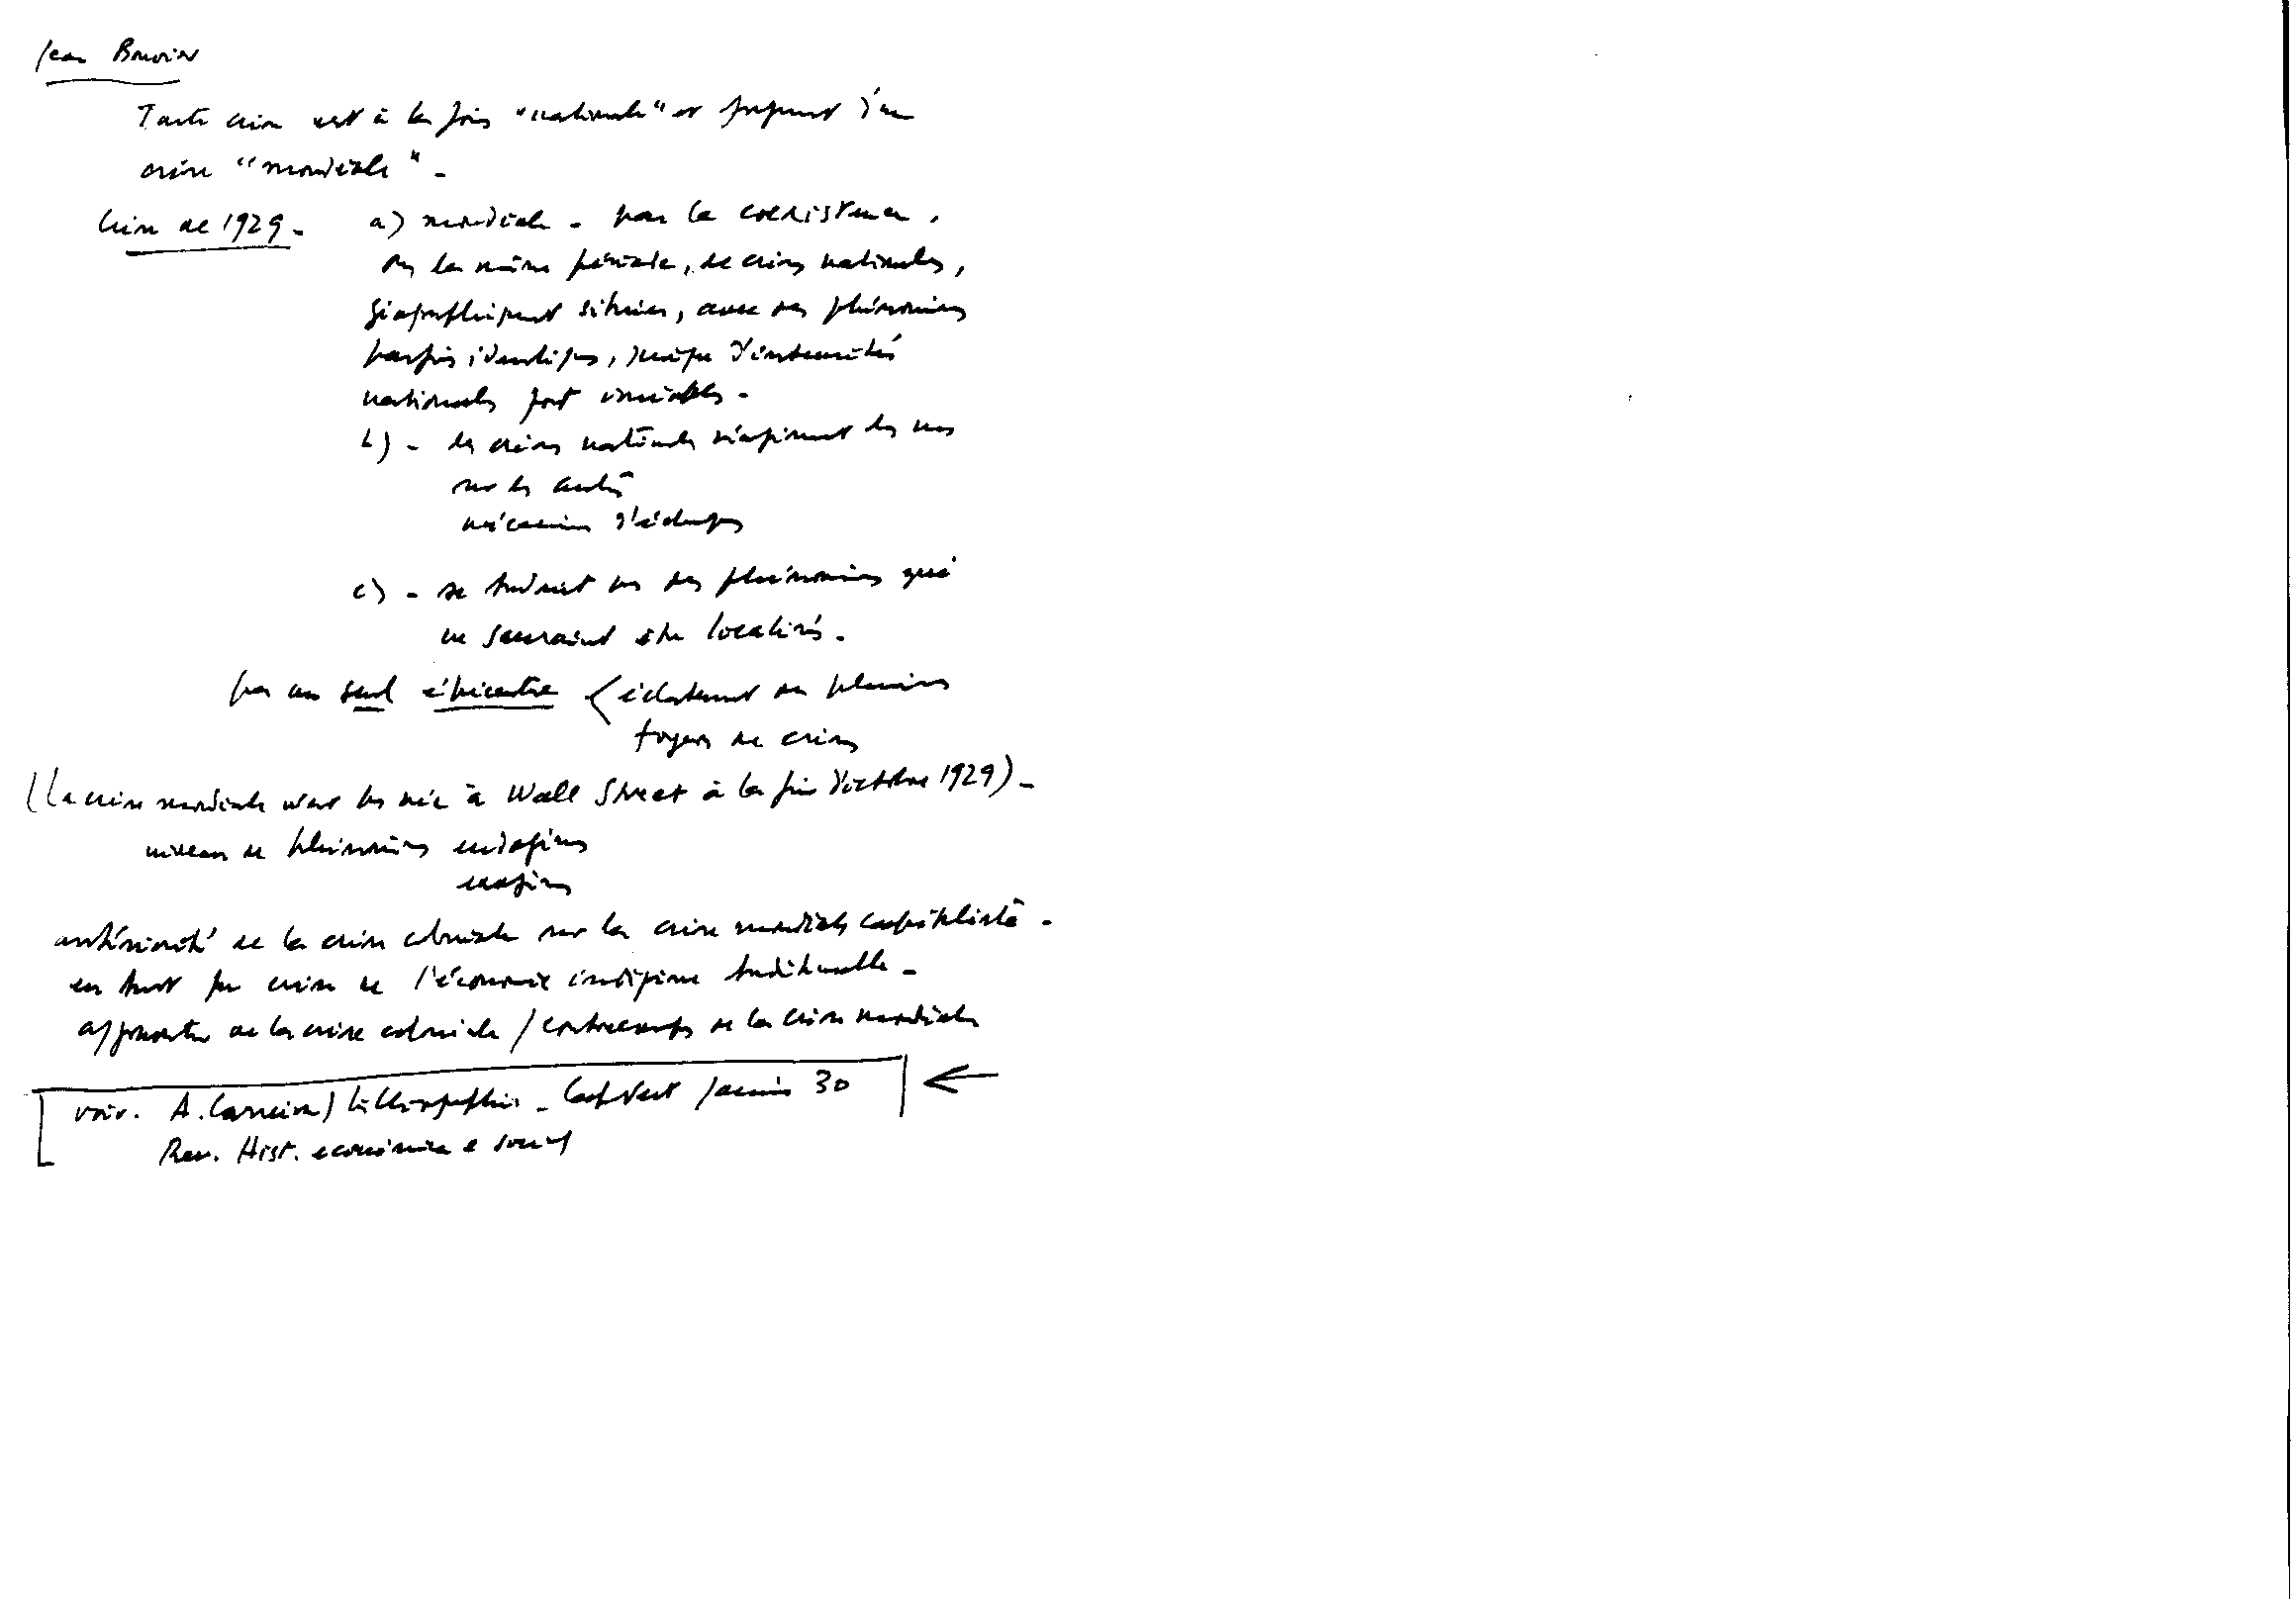 Jean Bouvier
Toute crise est à la fois "nationale" et fragment d'une
crise "mondiale" -
Crise de 1929 - a) mondiale - par la coexistence,
ds la même période, de crises nationales,
géographiquement situées, avec des phénomènes
parfois identiques, quoique d'intensités
nationales fort variables -
b) - les crises nationales réagissent les unes
sur les autres
mécanismes d'échanges
c) - se traduit en des phénomènes qui
ne sauraient être localisés -
pas un seul épicentre < éclatement de plusieurs
foyers de crises
(La crise mondiale n'est pas née à Wall Street à la fin d'octobre 1929) -
niveau de phénomènes endogènes
exogènes
antériorité de la crise coloniale sur la crise mondiale capitaliste -
en tant que crise de l'économie indigène traditionnelle -
de la crise coloniale / contrecoups de la crise mondiale
voir. A. Carreira / bibliographie - Cap Vert / années 30 ←
Rev. Hist. económica e social